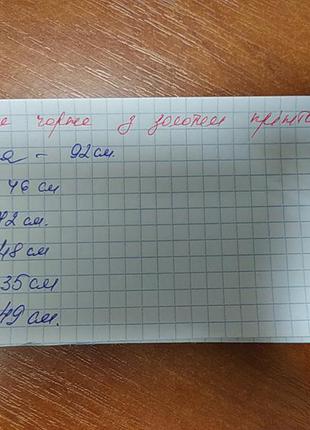 е чорне з золотем прінто
а - 92см.
46 см
72см.
48см
35см
49см.